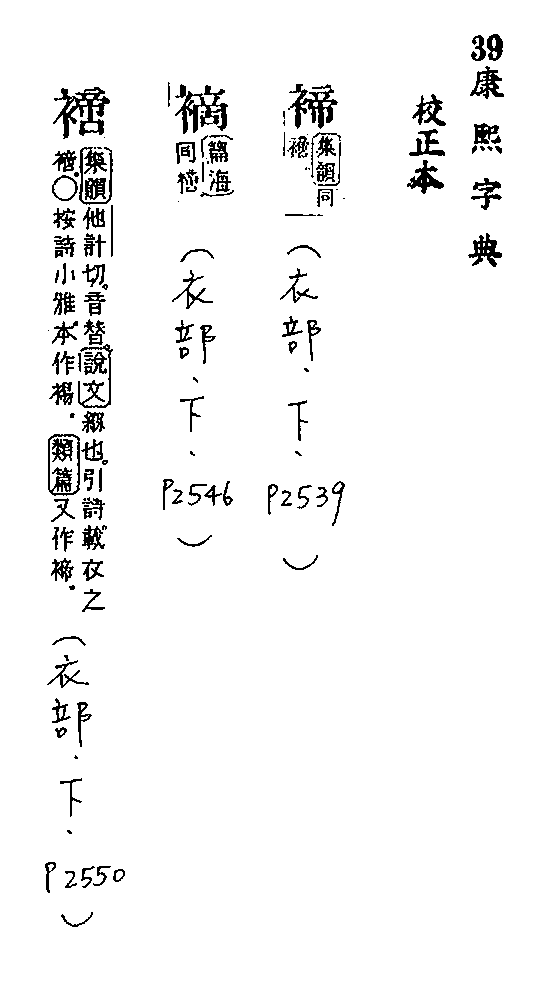 39康熙字典
校正本
褅
集韻同
𧝐
(衣部、下、P2539)
篇海
同𧝐
(衣部、下、P2546)
𧝐
集韻他計切。音替。說文緥也。引詩。載衣之
𧝐。○按詩小雅。本作裼。類篇又作褅。
(衣部、下、P2550)